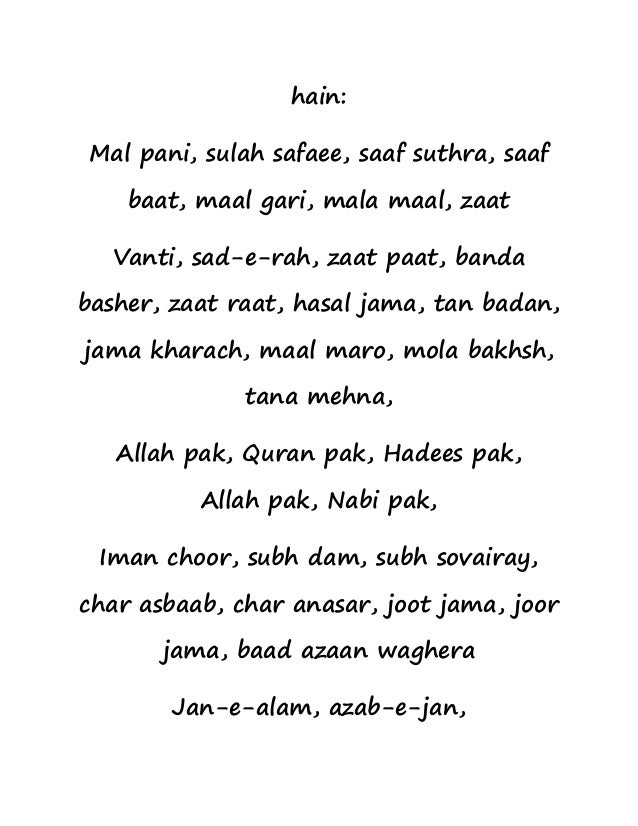 hain:
Mal pani, sulah safaee, saaf suthra, saaf
baat, maal gari, mala maal, zaat
Vanti, sad-e-rah, zaat paat, banda
basher, zaat raat, hasal jama, tan badan,
jama kharach, maal maro, mola bakhsh,
tana mehna,
Allah pak, Quran pak, Hadees pak,
Allah pak, Nabi pak,
Iman choor, subh dam, subh sovairay,
char asbaab, char anasar, joot jama, joor
jama, baad azaan waghera
Jan-e-alam, azab-e-jan,